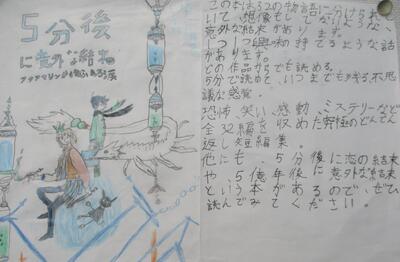 5分後
に意外な結末
アクアマリンの
この本は32の物語に分けられ
いて、想像もしてないような
意外な結末があります。
1つ1つ興味の持てるような話
があります。
どの作品からでも読める。
5分で読めて、いつまでも残る不思
議な感覚。
恐怖、笑い、感動、ミステリーなど
全32編を収めた究極のどんでん
返し短編集。
他にも、5分後に恋の結末
や、5億年後に意外な結末
という本があるので、ぜひ
読んでみてください。